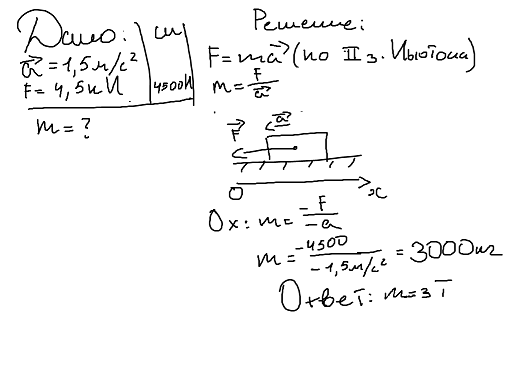 Дано:
си
a = 1,5 м/с²
F = 4,5 кН
4500Н
m = ?
Решение:
F = ma (по II з. Ньютона)
m = F/a
F
a
O
x
Ox: m = -F/-a
m = -4500/-1,5м/с² = 3000кг
Ответ: m = 3 т